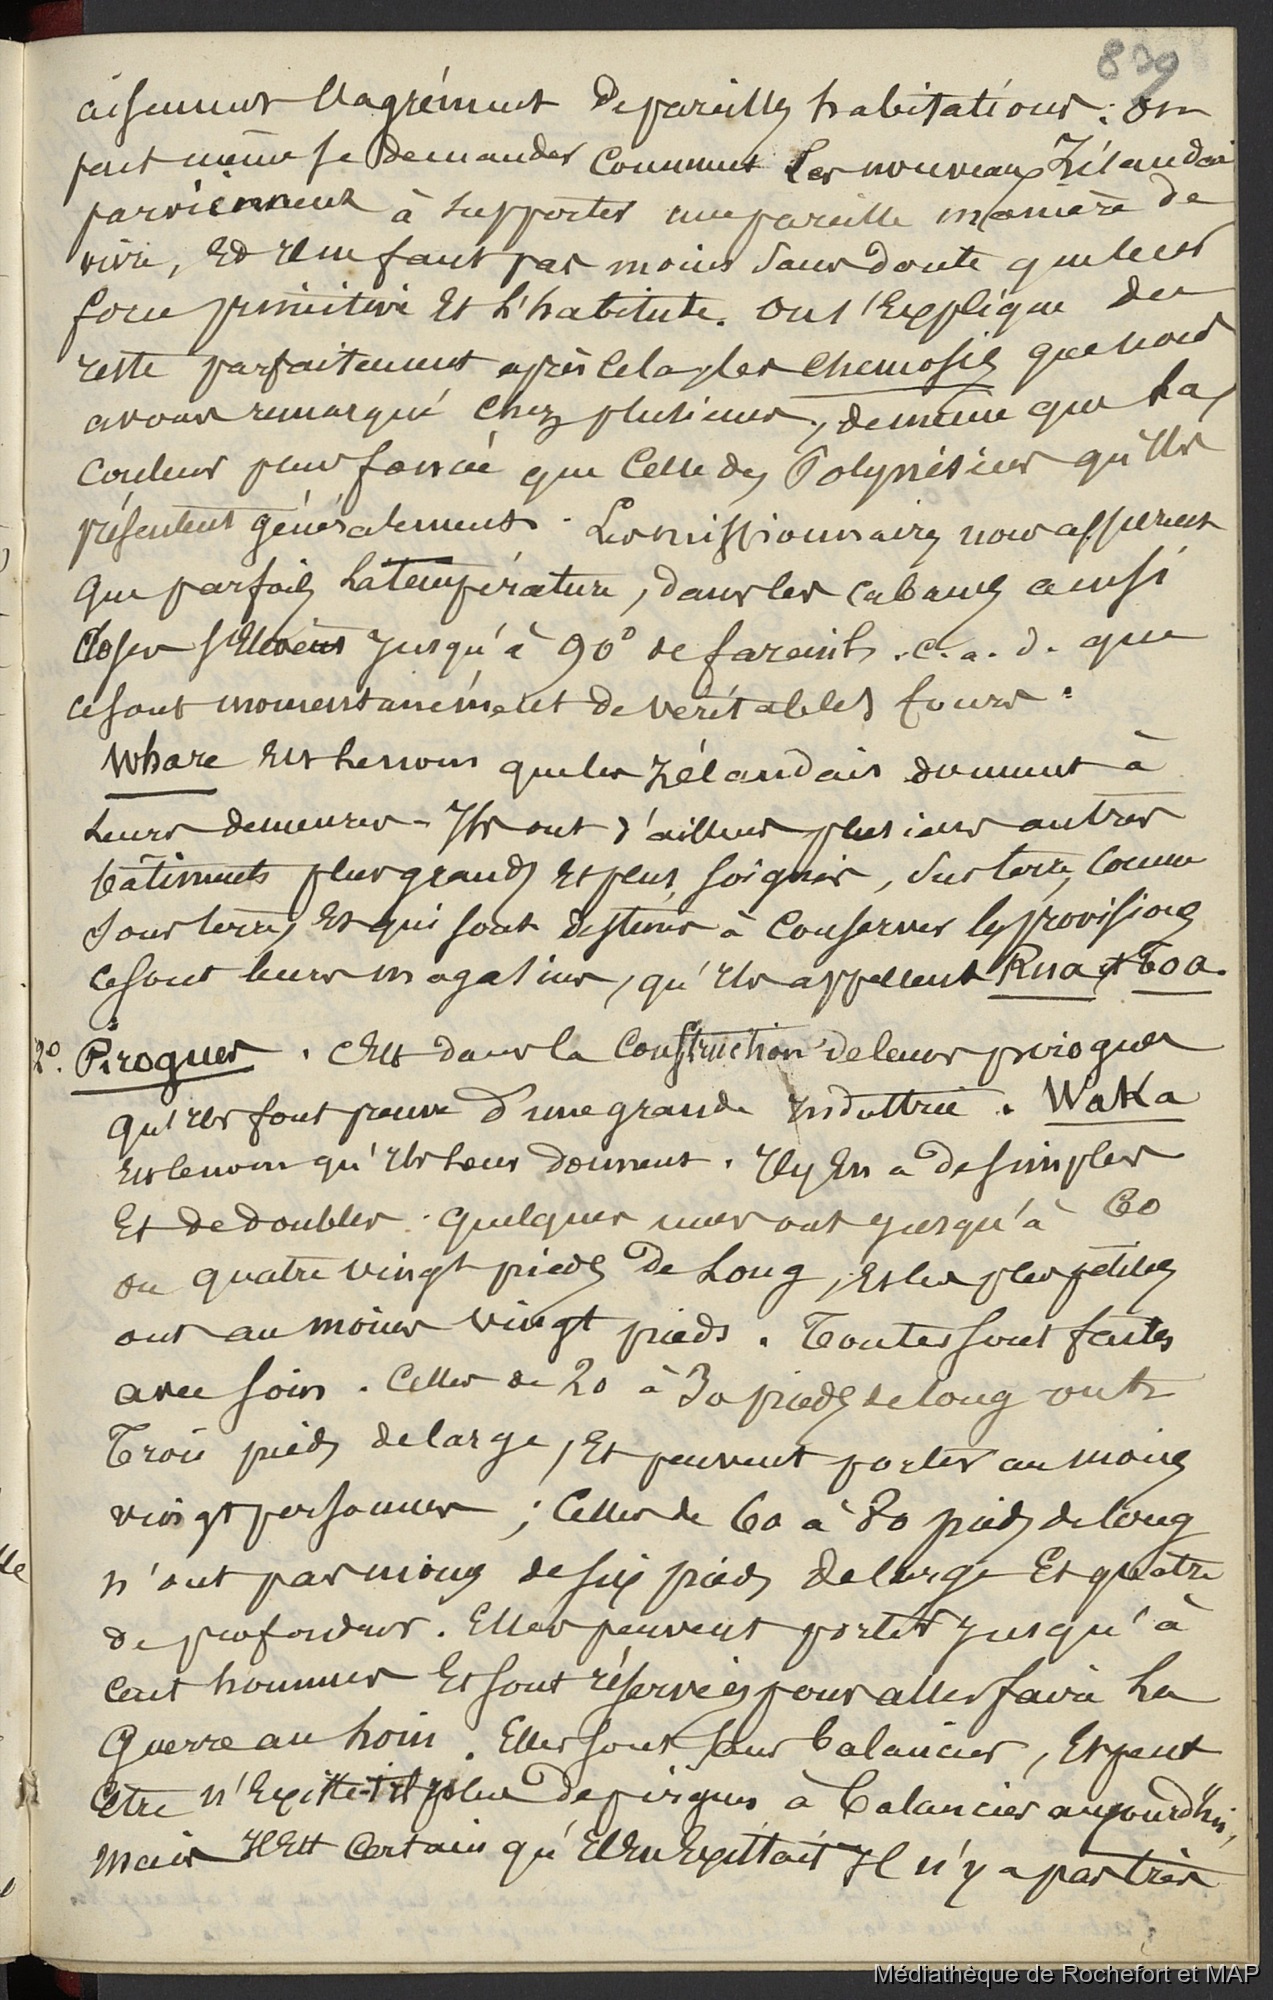 839
aisement l'agrément de pareilles habitations : on
peut même se demander comment les nouveaux Zélandais
parviennent à supporter une pareille manière de
vivre, et il ne faut pas moins sans doute que leur
force primitive et l'habitude. On s'explique du
reste parfaitement après cela, les chemosies que nous
avons remarqué chez plusieurs, de même que la
couleur plus foncée que celle des Polynésiens qu'ils
présentent généralement. Les missionnaires nous assurent
que parfois la température, dans les cabanes ainsi
closes s'élevent jusqu'à 90° de fareinh. c. a. d. que
ce sont momentanément de véritables fours.
Whare est le nom que les Zélandais donnent à
leurs demeures - Ils ont d'ailleurs plusieurs autres
bâtiments plus grands et plus soignés, sur terre, comme
sous terre, et qui sont destinés à conserver les provisions
ce sont leurs magasins, qu'ils appellent Rua et Toa.
2°. Pirogues. C'est dans la construction de leurs pirogues
qu'ils font preuve d'une grande industrie. Waka
est le nom qu'ils leur donnent. Il y en a de simples
et de doubles. Quelques unes ont jusqu'à 60
ou quatre vingt pieds de long, et les plus petites
ont au moins vingt pieds. Toutes sont faites
avec soin. Celles de 20 à 30 pieds de long ont
trois pieds de large, et peuvent porter au moins
vingt personnes ; celles de 60 à 80 pieds de long
n'ont pas moins de six pieds de large et quatre
de profondeur. Elles peuvent porter jusqu'à
cent hommes et sont réservées pour aller faire la
guerre au loin. Elles sont sans balancier, et peut
être n'existe-t-il plus de pirogues à balancier aujourd'hui,
mais il est certain qu'il en existait il n'y a pas très
Médiathèque de Rochefort et MAP